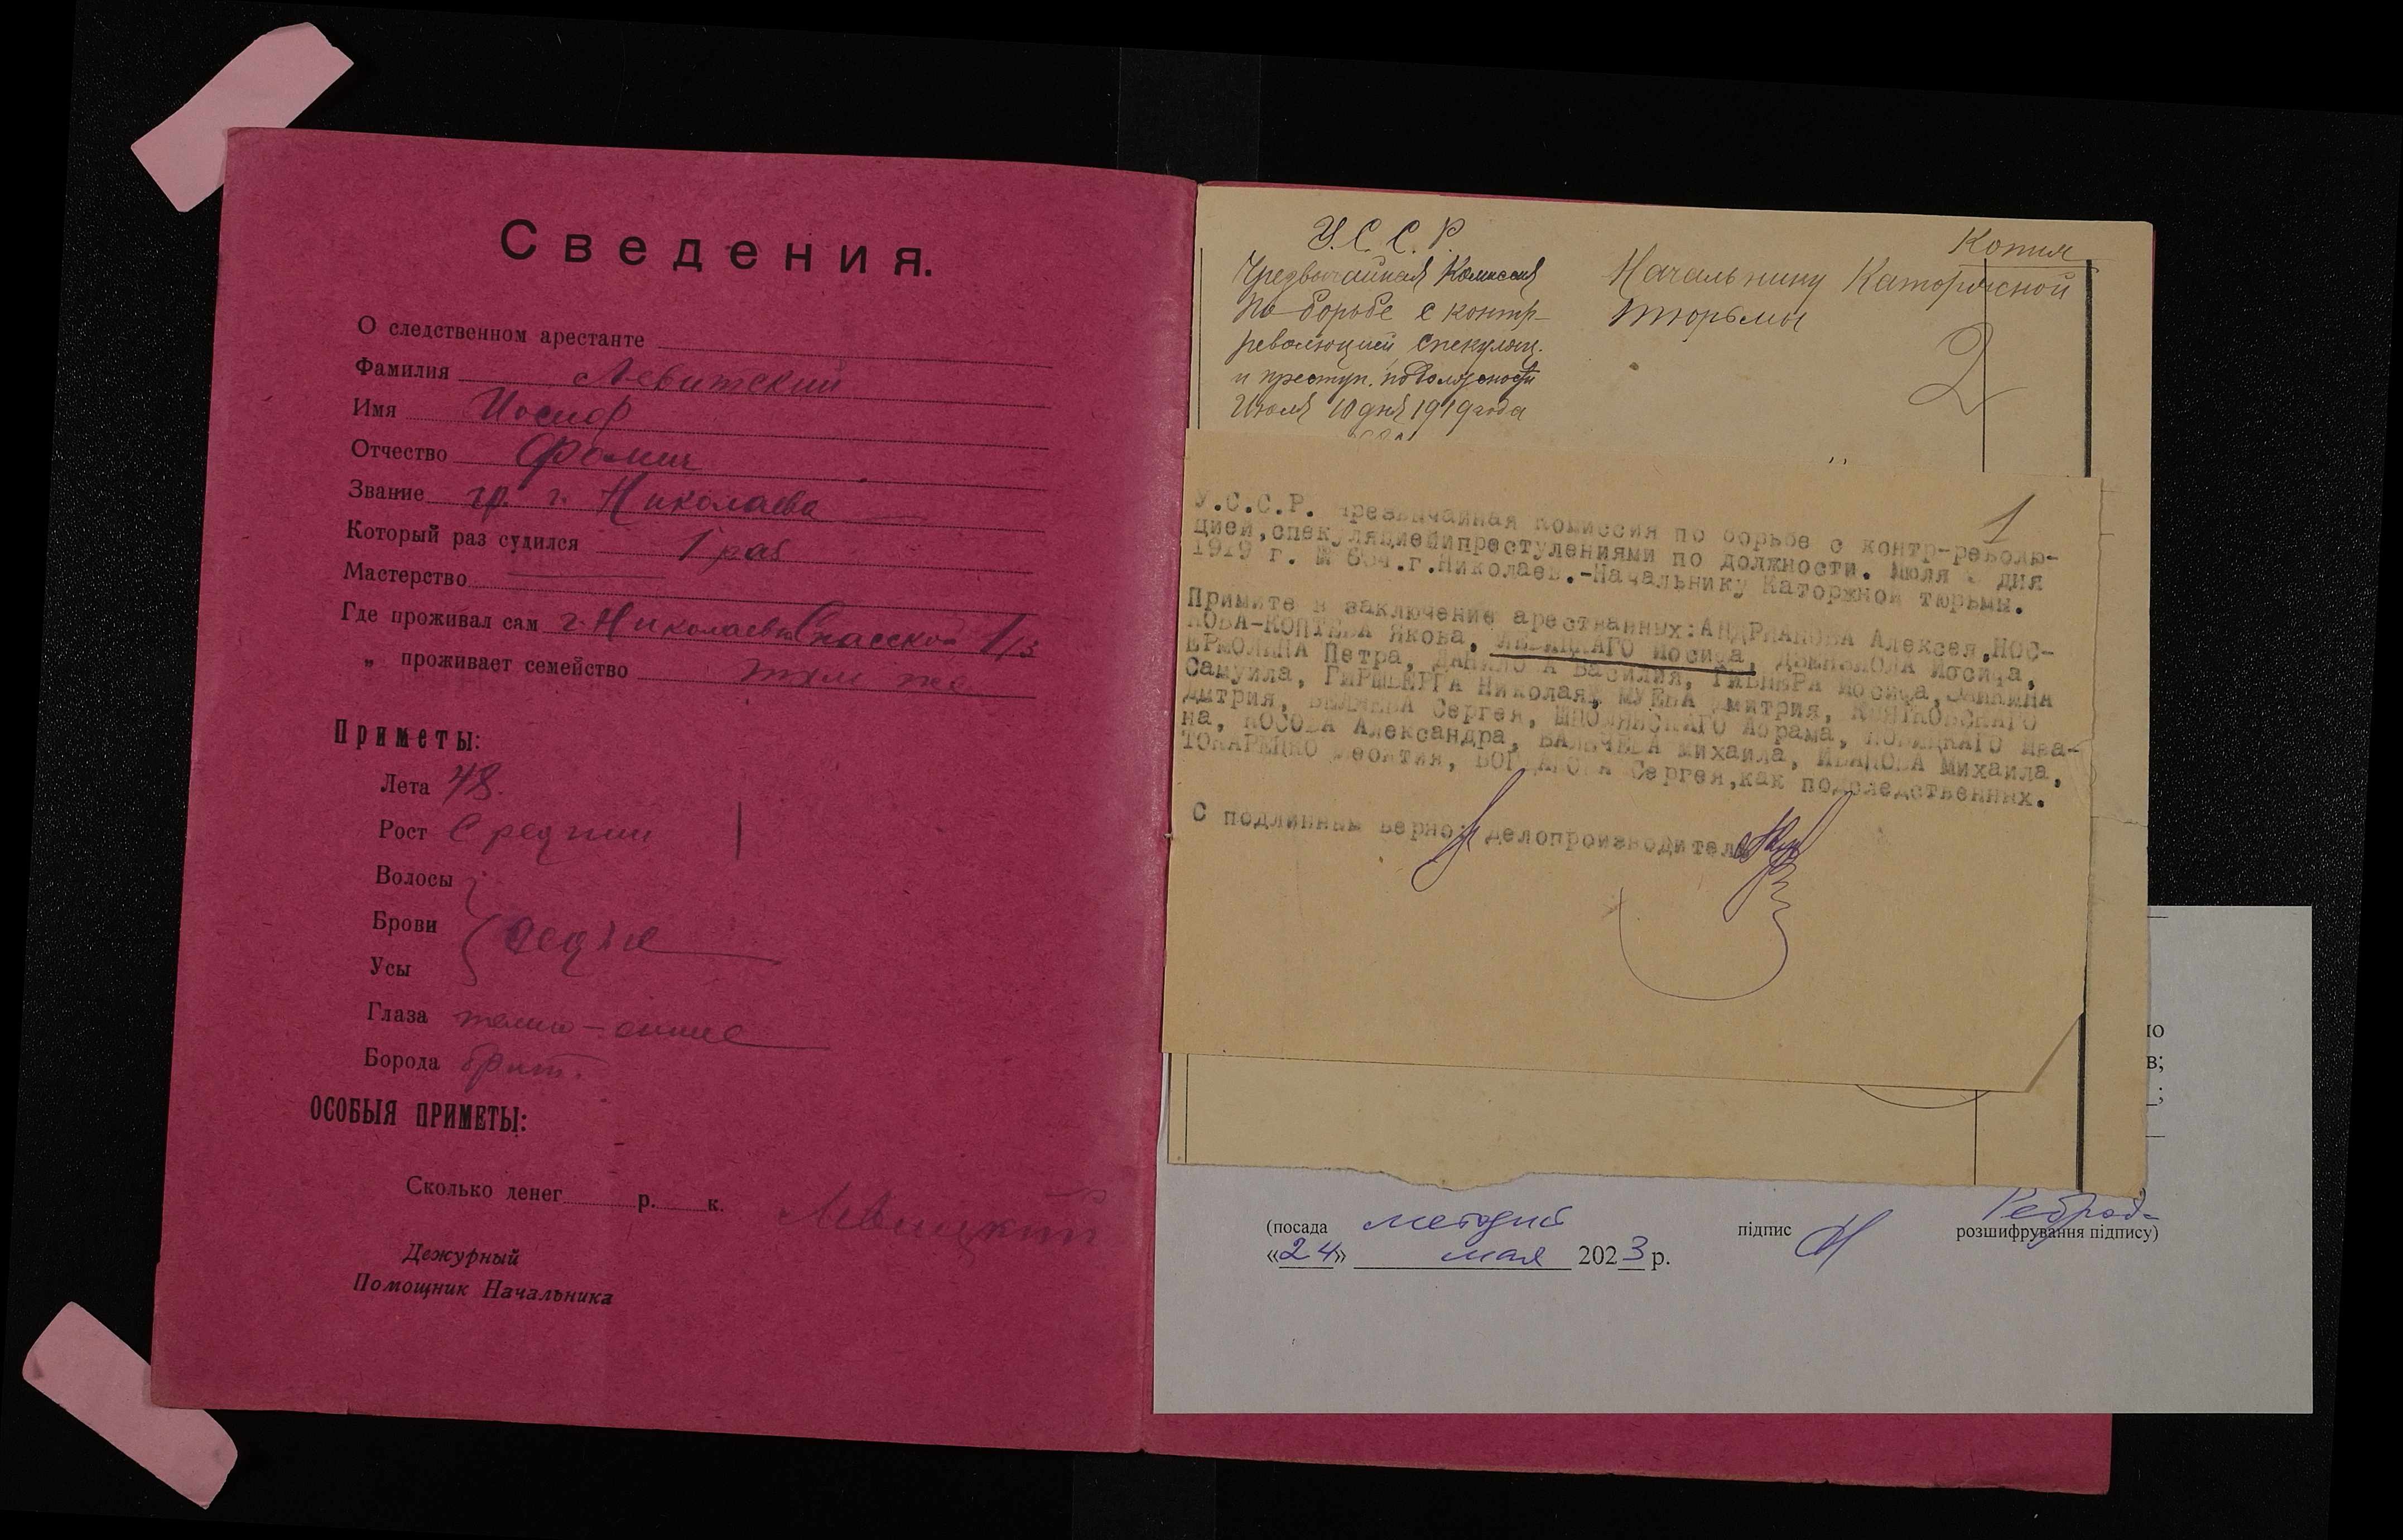 Сведения.
О следственном арестанте
Фамилия Левитский
Имя Иосиф
Отчество Фомич
Звание гр. г. Николаева
Который раз судился 1 раз
Мастерство
Где проживал сам г. Николаев Спасская 1/3
„ проживает семейство там же
Приметы:
Лета 48.
Рост Средний
Волосы
Брови седые
Усы
Глаза темно-синие
Борода брит.
ОСОБЫЯ ПРИМЕТЫ:
Сколько денег р. к.
Левицкий
Дежурный
Помощник Начальника
Копия
У. С. С. Р.
Чрезвычайная Комиссия
По борьбе с контр-
революцией, спекуляц.
и преступ. по должности
Июля 10 дня 1919 года
Начальнику Каторжной
тюрьмы
2
1
У.С.С.Р. Чрезвычайная комиссия по борьбе с контр-револю-
цией,спекуляциейипреступлениями по должности. Июля дня
1919 г. № г.Николаев.-Начальнику Каторжной тюрьмы.
Примите в заключение арестванных:АНДРИАНОВА Алексея,НОС-
КОВА-КОПТЕВА Якова, ЛЕВИЦКАГО Иосифа, Иосифа,
ЕРМОЛИНА Петра, ДАНИЛО А Василия, Иосифа,
Самуила, ГИРШБЕРГА Николая, Дмитрия, КВЯТКОВСКАГО
Дмтрия, Сергея, ШПОЛЯНСКАГО Абрама, Ива-
на, КОСОВА Александра, Михаила, ИВАНОВА Михаила,
Леонтия, Сергея,как подследственных.
С подлинным верно: делопроизводитель
(посада методист підпис розшифрування підпису)
«24» мая 2023 р.